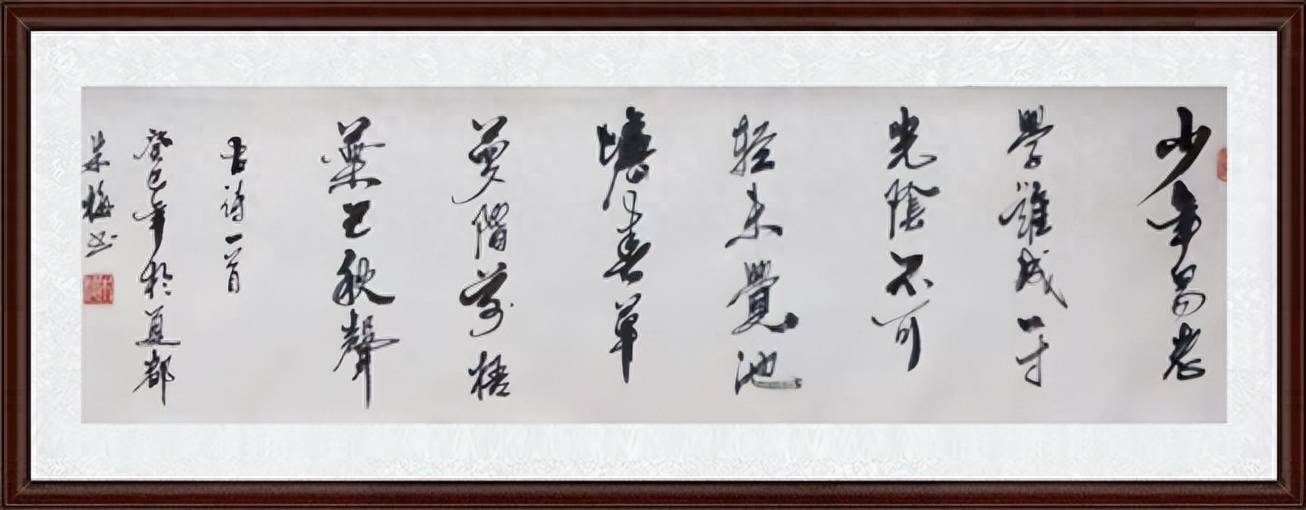 少年易老
學難成一寸
光陰不可
輕未覺池
塘春草
夢階前梧
葉已秋聲
古詩一首
癸巳年於夏都
朱梅書